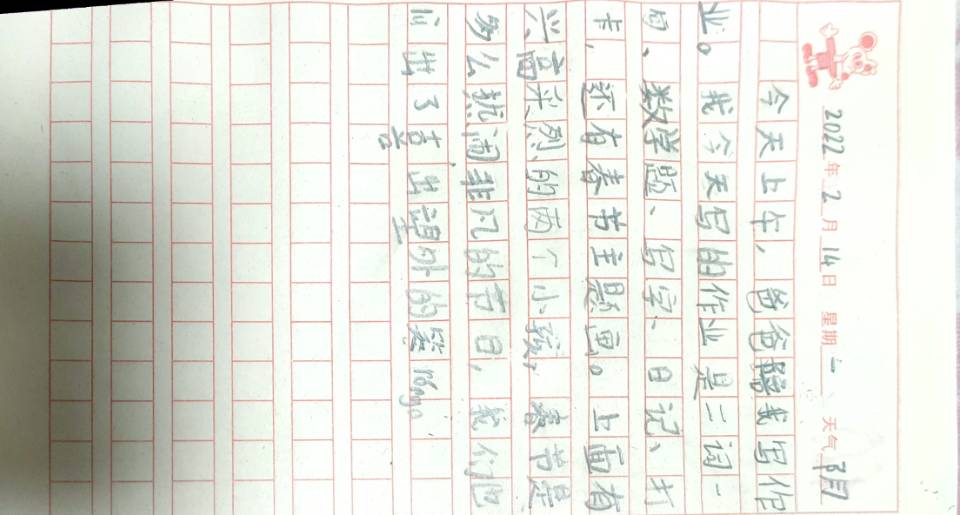 2022年2月14日 星期一 天气阴
今天上午，爸爸陪我写作
业。我今天写的作业是二词一
句、数学题、写字、日记、打
卡，还有春节主题画。上面有
兴高采烈的两个小孩，春节是
多么热闹非凡的节日，我们也
出了喜出望外的笑容